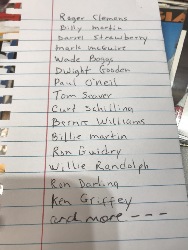 Roger Clemens
Billy martin
Darryl Strawberry
mark mcGwire
Wade Boggs
Dwight Gooden
Paul O'neil
Tom Seaver
Curt Schilling
Bernie Williams
Billie martin
Ron Guidry
Willie Randolph
Ron Darling
Ken Griffey
and more ----